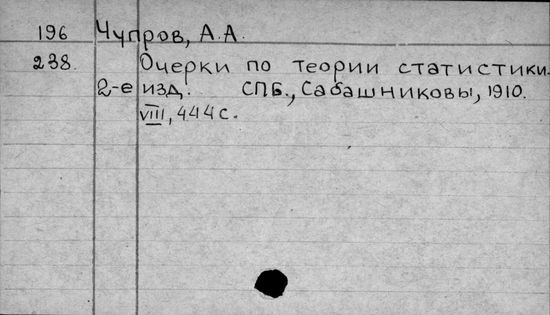 196 Чупров, А.А.
238. Очерки по теории статистики.
2-е изд. СПБ., Сабашниковы, 1910.
VIII, 444 с.